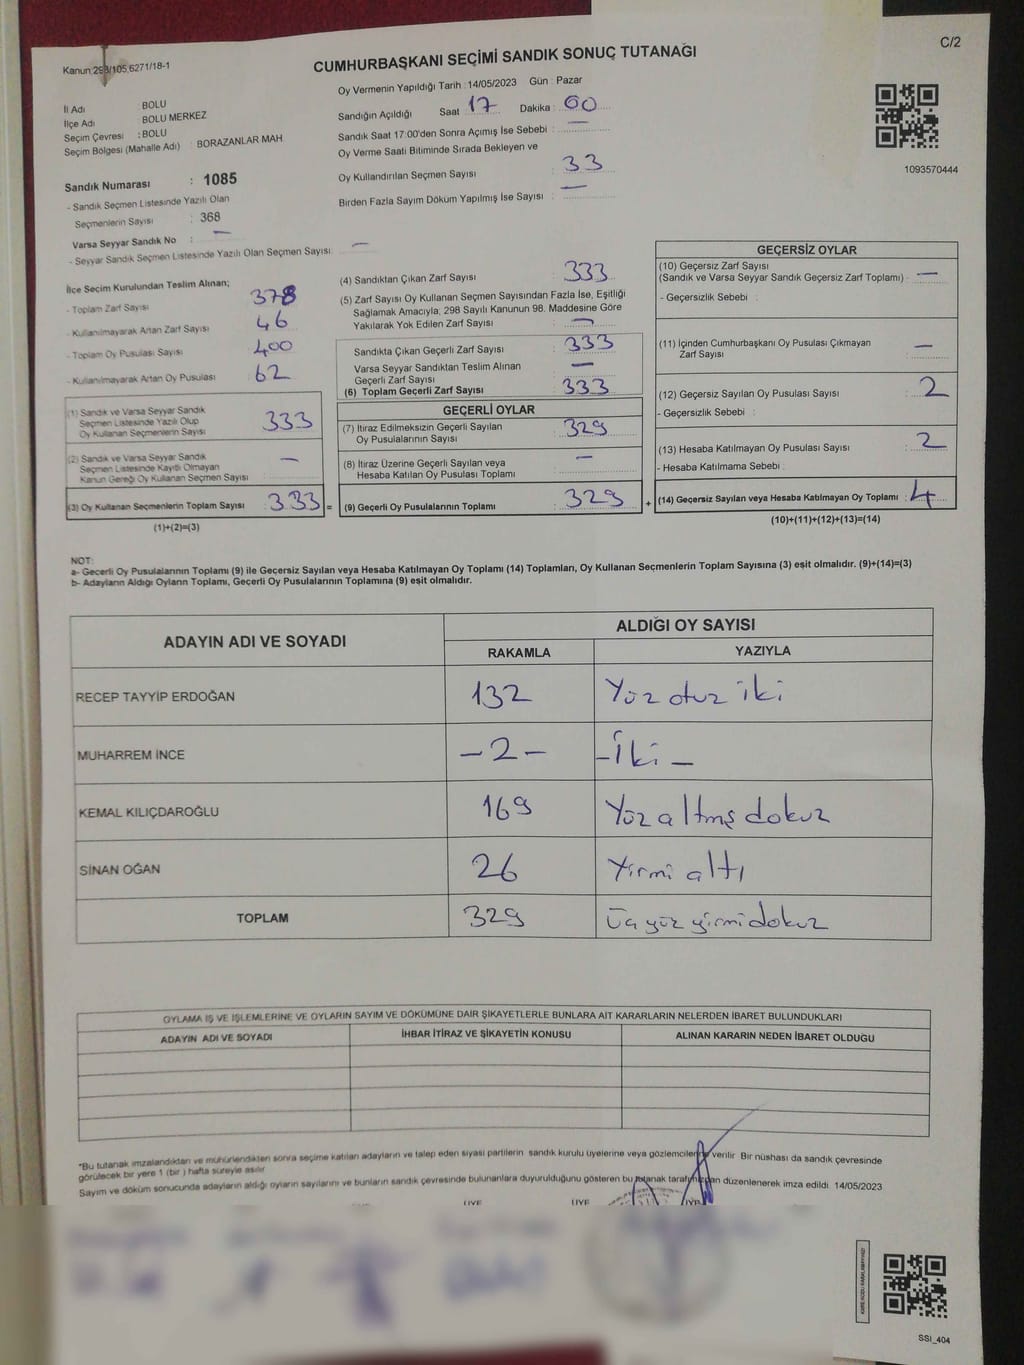 C/2
Kanun:298/105,6271/18-1
CUMHURBAŞKANI SEÇİMİ SANDIK SONUÇ TUTANAĞI
İl Adı : BOLU
İlçe Adı : BOLU MERKEZ
Seçim Çevresi : BOLU
Seçim Bölgesi (Mahalle Adı) : BORAZANLAR MAH
Sandık Numarası : 1085
- Sandık Seçmen Listesinde Yazılı Olan
Seçmenlerin Sayısı : 368
Varsa Seyyar Sandık No : —
- Seyyar Sandık Seçmen Listesinde Yazılı Olan Seçmen Sayısı: —
Oy Vermenin Yapıldığı Tarih : 14/05/2023 Gün : Pazar
Sandığın Açıldığı Saat 17 Dakika : 00
Sandık Saat 17:00'den Sonra Açımış İse Sebebi : —
Oy Verme Saati Bitiminde Sırada Bekleyen ve
Oy Kullandırılan Seçmen Sayısı : 33
Birden Fazla Sayım Döküm Yapılmış İse Sayısı : —
1093570444
İlçe Seçim Kurulundan Teslim Alınan;
- Toplam Zarf Sayısı 378
- Kullanılmayarak Artan Zarf Sayısı 46
- Toplam Oy Pusulası Sayısı 400
- Kullanılmayarak Artan Oy Pusulası 62
(1) Sandık ve Varsa Seyyar Sandık
Seçmen Listesinde Yazılı Olup
Oy Kullanan Seçmenlerin Sayısı 333
(2) Sandık ve Varsa Seyyar Sandık
Seçmen Listesinde Kayıtlı Olmayan
Kanun Gereği Oy Kullanan Seçmen Sayısı —
(3) Oy Kullanan Seçmenlerin Toplam Sayısı : 333 =
(1)+(2)=(3)
(4) Sandıktan Çıkan Zarf Sayısı : 333
(5) Zarf Sayısı Oy Kullanan Seçmen Sayısından Fazla İse, Eşitliği
Sağlamak Amacıyla, 298 Sayılı Kanunun 98. Maddesine Göre
Yakılarak Yok Edilen Zarf Sayısı : —
Sandıkta Çıkan Geçerli Zarf Sayısı : 333
Varsa Seyyar Sandıktan Teslim Alınan
Geçerli Zarf Sayısı : —
(6) Toplam Geçerli Zarf Sayısı : 333
GEÇERLİ OYLAR
(7) İtiraz Edilmeksizin Geçerli Sayılan
Oy Pusulalarının Sayısı : 329
(8) İtiraz Üzerine Geçerli Sayılan veya
Hesaba Katılan Oy Pusulası Toplamı : —
(9) Geçerli Oy Pusulalarının Toplamı : 329 +
GEÇERSİZ OYLAR
(10) Geçersiz Zarf Sayısı
(Sandık ve Varsa Seyyar Sandık Geçersiz Zarf Toplamı) : —
- Geçersizlik Sebebi :
(11) İçinden Cumhurbaşkanı Oy Pusulası Çıkmayan
Zarf Sayısı : —
(12) Geçersiz Sayılan Oy Pusulası Sayısı : 2
- Geçersizlik Sebebi :
(13) Hesaba Katılmayan Oy Pusulası Sayısı : 2
- Hesaba Katılmama Sebebi :
(14) Geçersiz Sayılan veya Hesaba Katılmayan Oy Toplamı : 4
(10)+(11)+(12)+(13)=(14)
NOT:
a- Geçerli Oy Pusulalarının Toplamı (9) ile Geçersiz Sayılan veya Hesaba Katılmayan Oy Toplamı (14) Toplamları, Oy Kullanan Seçmenlerin Toplam Sayısına (3) eşit olmalıdır. (9)+(14)=(3)
b- Adayların Aldığı Oyların Toplamı, Geçerli Oy Pusulalarının Toplamına (9) eşit olmalıdır.
ADAYIN ADI VE SOYADI ALDIĞI OY SAYISI
RAKAMLA YAZIYLA
RECEP TAYYİP ERDOĞAN 132 Yüz otuz iki
MUHARREM İNCE -2- -İki-
KEMAL KILIÇDAROĞLU 169 Yüz altmş dokuz
SİNAN OĞAN 26 Yirmi altı
TOPLAM 329 Üç yüz yirmi dokuz
OYLAMA İŞ VE İŞLEMLERİNE VE OYLARIN SAYIM VE DÖKÜMÜNE DAİR ŞİKAYETLERLE BUNLARA AİT KARARLARIN NELERDEN İBARET BULUNDUKLARI
ADAYIN ADI VE SOYADI İHBAR İTİRAZ VE ŞİKAYETİN KONUSU ALINAN KARARIN NEDEN İBARET OLDUĞU
*Bu tutanak imzalandıktan ve mühürlendikten sonra seçime katılan adayların ve talep eden siyasi partilerin sandık kurulu üyelerine veya gözlemcilerine verilir. Bir nüshası da sandık çevresinde
görülecek bir yere 1 (bir) hafta süreyle asılır
Sayım ve döküm sonucunda adayların aldığı oyların sayılarını ve bunların sandık çevresinde bulunanlara duyurulduğunu gösteren bu tutanak tarafımızdan düzenlenerek imza edildi. 14/05/2023
ÜYE ÜYE ÜYE
SSI_404